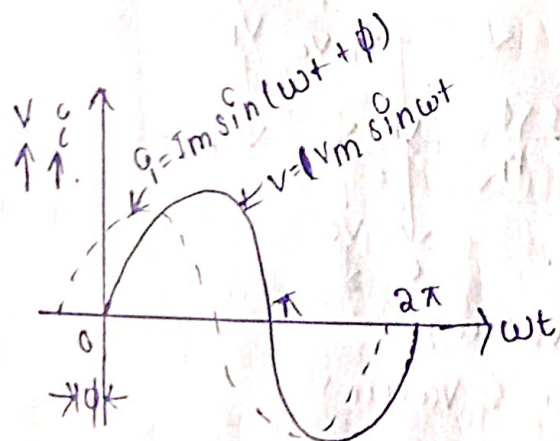 V i
i = Im sin (ωt + ϕ)
V = Vm sin ωt
0
π
2π
ωt
ϕ